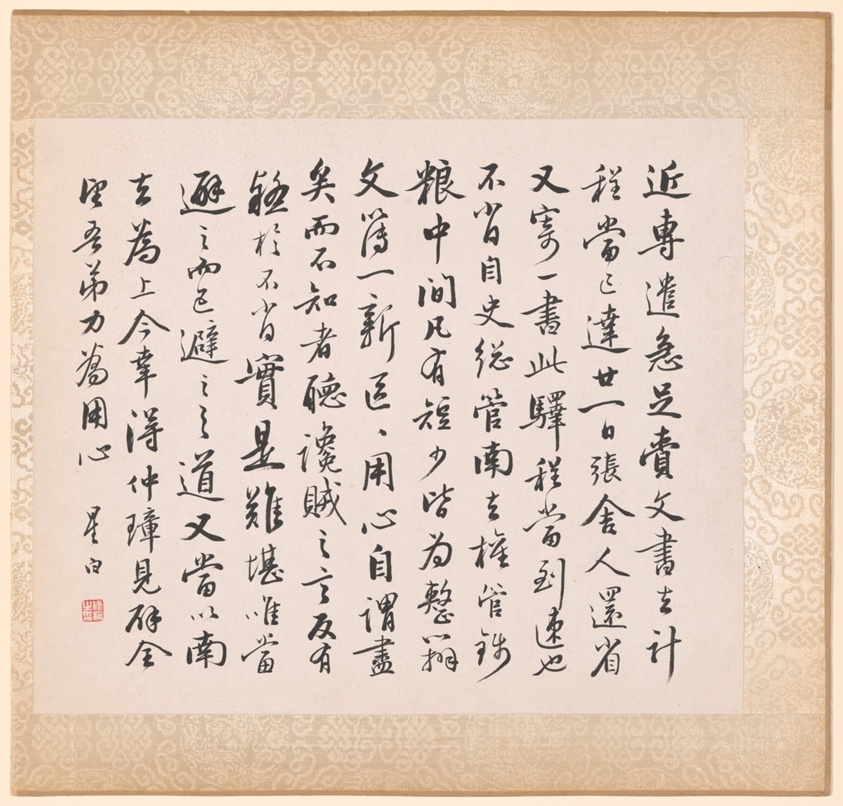 近專遣急足賫文書去計
程當已達廿一日張舍人還省
又寄一書此驛程當到速也
不肖自史総管南去權管錢
粮中間凡有短少皆為整辦
文簿一新區〻用心自謂盡
矣而不知者聽讒賊之言反有
疑於不肖實是難堪唯當
避之而已避之之道又當以南
去為上今幸得仲璋見辟全
望吾弟力為用心 星白